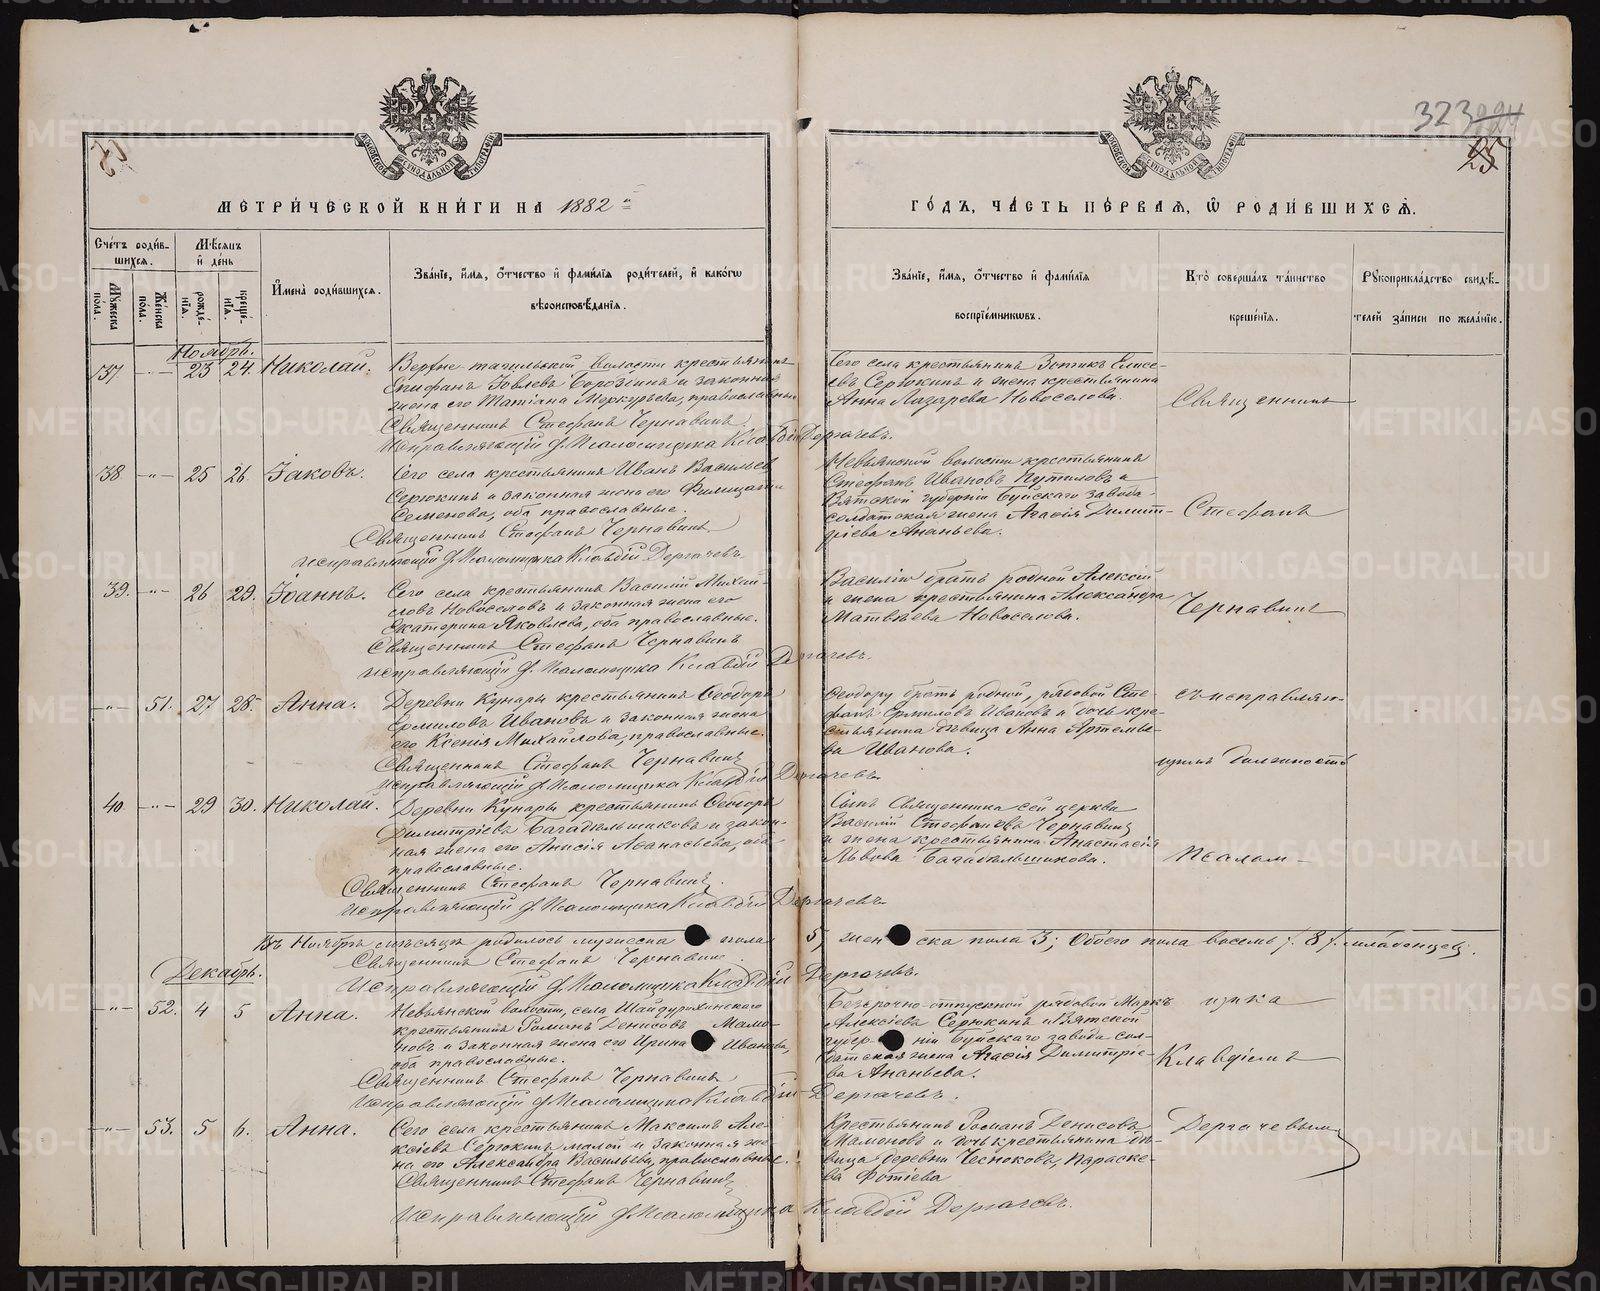 323 224
25
МЕТРИЧЕСКОЙ КНИГИ НА 1882 й
ГОДЪ, ЧАСТЬ ПЕРВАЯ, Ѿ РОДИВШИХСЯ.
Счетъ родив-
шихся.
Мужеска
пола.
Женска
пола.
Мѣсяцъ
и день
рожде-
нїя.
креще-
нїя.
Имена родившихся.
Званїе, имя, отчество и фамилїя родителей, и какогѡ
вѣроисповѣданїя.
Званїе, имя, отчество и фамилїя
воспрїемниковъ.
Кто совершалъ таинство
крещенїя.
Рукоприкладство свидѣ-
телей записи по желанїю.
Ноябрь.
137 - " - 23 24. Николай.
Верхне-тагильской волости крестьянинъ
Епифанъ Іовлевъ Борозинъ и законная
жена его Татіана Меркурьева, православные
Священникъ Стефанъ Чернавинъ
Исправляющій д. Псаломщика Клавдій Дергачевъ.
Сего села крестьянинъ Зотикъ Елисе-
евъ Серюкинъ и жена крестьянина
Анна Лазарева Новоселова.
Священникъ
38 - " - 25 26. Іаковъ.
Сего села крестьянинъ Иванъ Васильев
Серюкинъ и законная жена его Филицата
Семенова, оба православные.
Священникъ Стефанъ Чернавинъ
Исправляющій д. Псаломщика Клавдій Дергачевъ
Невьянской волости крестьянинъ
Стефанъ Ивановъ Путиловъ и
Вятской губерніи Буйскаго завода
солдатская жена Агафія Димит-
ріева Ананьева.
Стефанъ
39. - " - 26 29. Іоаннъ.
Сего села крестьянинъ Василій Михай-
ловъ Новоселовъ и законная жена его
Екатерина Яковлева, оба православные.
Священникъ Стефанъ Чернавинъ
Исправляющій д. Псаломщика Клавдій Дергачевъ.
Василію братъ родной Алексій
и жена крестьянина Александра
Матвѣева Новоселова.
Чернавинъ
- " - 51. 27 28. Анна.
Деревни Кунары крестьянинъ Ѳеодоръ
Ермиловъ Ивановъ и законная жена
его Ксенія Михайлова, православные.
Священникъ Стефанъ Чернавинъ
Исправляющій д. Псаломщика Клавдій Дергачевъ
Ѳеодору братъ родной, рядовой Сте-
фанъ Ермиловъ Ивановъ и дочь кре-
стьянина дѣвица Анна Артемье-
ва Иванова.
съ исправляю-
щимъ должность
40. - " - 29 30. Николай.
Деревни Кунары крестьянинъ Ѳеодоръ
Димитріевъ Багадѣльщиковъ и закон-
ная жена его Анисія Аѳанасьева, оба
православные.
Священникъ Стефанъ Чернавинъ.
Исправляющій д. Псаломщика Клавдій Дергачевъ
Сынъ Священника сей церкви
Василій Стефановъ Чернавинъ
и жена крестьянина Анастасія
Львова Багадѣльщикова.
Псалом-
Въ Ноябрѣ мѣсяцѣ родилось мужеска пола 5, женска пола 3; Обоего пола восемь /. 8 /. младенцевъ.
Священникъ Стефанъ Чернавинъ
Исправляющій д. Псаломщика Клавдій Дергачевъ.
Декабрь.
- " - 52. 4 5 Анна.
Невьянской волости, села Шайдурихинскаго
крестьянинъ Романъ Денисовъ Мамо-
новъ и законная жена его Ирина Иванова,
оба православные.
Священникъ Стефанъ Чернавинъ
Исправляющій д. Псаломщика Клавдій Дергачевъ.
Безсрочно-отпускной рядовой Маркъ
Алексѣевъ Серюкинъ и Вятской
губерніи Буйскаго завода сол-
датская жена Агафія Димитріе-
ва Ананьева.
щика
Клавдіемъ
- " - 53. 5 6. Анна.
Сего села крестьянинъ Максимъ Але-
ксѣевъ Серюкинъ малой и законная же-
на его Александра Васильева, православные.
Священникъ Стефанъ Чернавинъ
Исправляющій д. Псаломщика Клавдій Дергачевъ.
Крестьянинъ Романъ Денисовъ
Мамоновъ и дочь крестьянина дѣ-
вица деревни Чеснокова, Параске-
ва Фотіева
Дергачевымъ
METRIKI.GASO-URAL.RU